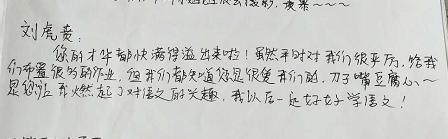 刘虎贲:
您的才华都快满得溢出来啦!虽然平时对我们很严厉,给我
们布置很多的作业,但我们都知道您是很爱我们的,刀子嘴豆腐心~
是您让我燃起了对语文的兴趣,我以后一定好好学语文!